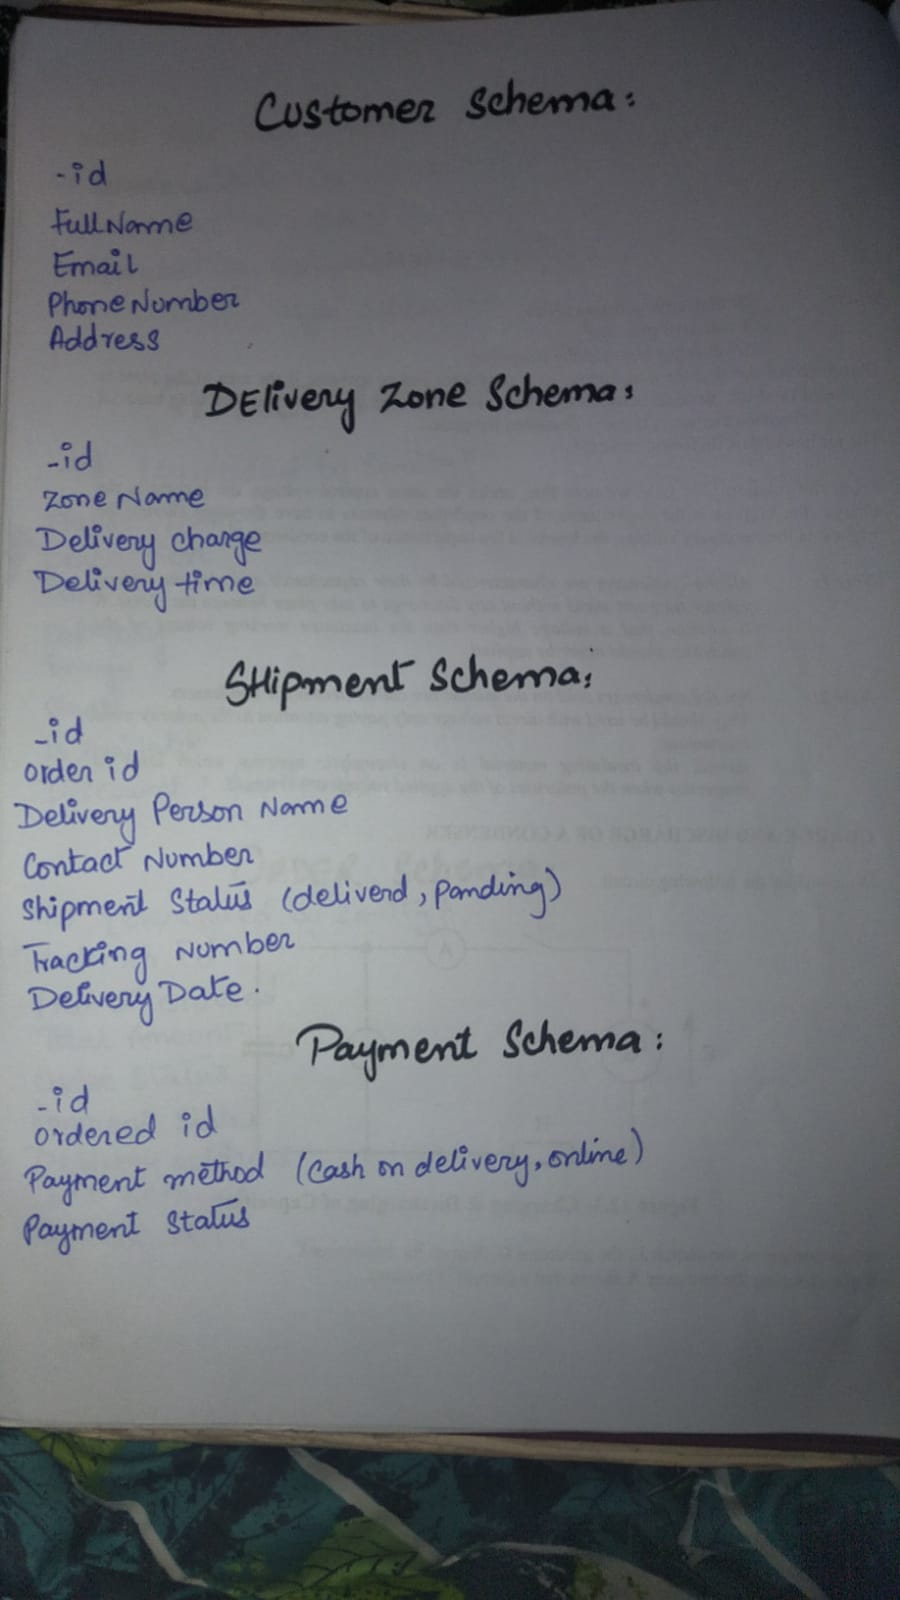 Customer Schema:
-id
FullName
Email
PhoneNumber
Address
DElivery Zone Schema:
-id
Zone Name
Delivery charge
Delivery time
SHipment Schema:
-id
order id
Delivery Person Name
Contact Number
Shipment Status (deliverd, panding)
Tracking Number
Delivery Date.
Payment Schema:
-id
ordered id
Payment method (Cash on delivery, online)
Payment Status